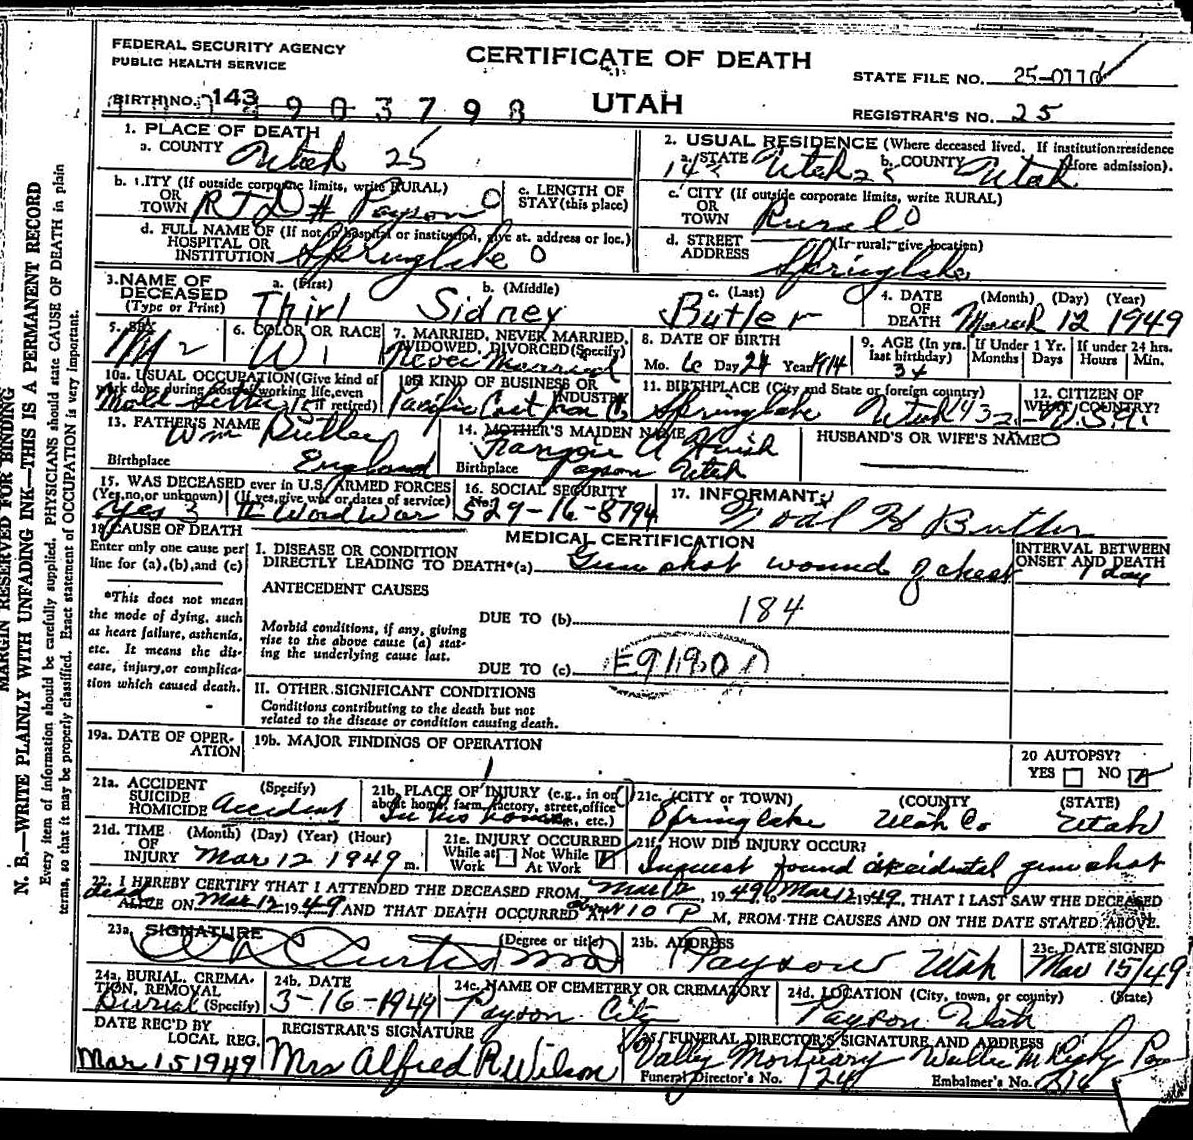 FEDERAL SECURITY AGENCY
PUBLIC HEALTH SERVICE
CERTIFICATE OF DEATH
UTAH
STATE FILE NO. 25-0110
BIRTH NO. 143 903798
REGISTRAR'S NO. 25
MARGIN RESERVED FOR BINDING
N. B.—WRITE PLAINLY WITH UNFADING INK—THIS IS A PERMANENT RECORD
Every item of information should be carefully supplied. PHYSICIANS should state CAUSE OF DEATH in plain
terms, so that it may be properly classified. Exact statement of OCCUPATION is very important.
1. PLACE OF DEATH
a. COUNTY Utah 25
2. USUAL RESIDENCE (Where deceased lived. If institution: residence
before admission).
a. STATE Utah 25 b. COUNTY Utah
b. CITY (If outside corporate limits, write RURAL)
OR
TOWN RFD # Payson 0
c. LENGTH OF
STAY (this place)
c. CITY (If outside corporate limits, write RURAL)
OR
TOWN Rural 0
d. FULL NAME OF (If not in hospital or institution, give st. address or loc.)
HOSPITAL OR
INSTITUTION Springlake 0
d. STREET (If rural, give location)
ADDRESS Springlake
3. NAME OF DECEASED
(Type or Print)
a. (First) Thirl
b. (Middle) Sidney
c. (Last) Butler
4. DATE OF DEATH (Month) (Day) (Year)
March 12 1949
5. SEX M 2
6. COLOR OR RACE W 1
7. MARRIED, NEVER MARRIED,
WIDOWED, DIVORCED (Specify)
Never Married
8. DATE OF BIRTH
Mo. 6 Day 24 Year 1914
9. AGE (In yrs. last birthday) 34
If Under 1 Yr. Months Days
If under 24 hrs. Hours Min.
10a. USUAL OCCUPATION (Give kind of
work done during most of working life, even
if retired)
10b. KIND OF BUSINESS OR
INDUSTRY
11. BIRTHPLACE (City and State or foreign country)
Springlake Utah
12. CITIZEN OF
WHAT COUNTRY?
U.S.A.
13. FATHER'S NAME Wm Butler
Birthplace England
14. MOTHER'S MAIDEN NAME
Birthplace Payson Utah
HUSBAND'S OR WIFE'S NAME 0
15. WAS DECEASED ever in U.S. ARMED FORCES
(Yes, no, or unknown) (If yes, give war or dates of service)
Yes 3 II World War
16. SOCIAL SECURITY
No. 529-16-8794
17. INFORMANT
Butler
18. CAUSE OF DEATH
Enter only one cause per
line for (a), (b), and (c)
*This does not mean
the mode of dying, such
as heart failure, asthenia,
etc. It means the dis-
ease, injury, or complica-
tion which caused death.
MEDICAL CERTIFICATION
INTERVAL BETWEEN
ONSET AND DEATH
I. DISEASE OR CONDITION
DIRECTLY LEADING TO DEATH*(a) Gun shot wound of chest 1 day
ANTECEDENT CAUSES
DUE TO (b) 184
Morbid conditions, if any, giving
rise to the above cause (a) stat-
ing the underlying cause last.
DUE TO (c) E919.0
II. OTHER SIGNIFICANT CONDITIONS
Conditions contributing to the death but not
related to the disease or condition causing death.
19a. DATE OF OPER-
ATION
19b. MAJOR FINDINGS OF OPERATION
20 AUTOPSY?
YES NO
21a. ACCIDENT (Specify)
SUICIDE
HOMICIDE Accident
21b. PLACE OF INJURY (e.g., in or
about home, farm, factory, street, office
etc.)
In his home
21c. (CITY or TOWN) (COUNTY) (STATE)
Springlake Utah Co Utah
21d. TIME (Month) (Day) (Year) (Hour)
OF
INJURY Mar 12 1949 m.
21e. INJURY OCCURRED
While at Work Not While At Work
21f. HOW DID INJURY OCCUR?
Inquest found accidental gunshot
22. I HEREBY CERTIFY THAT I ATTENDED THE DECEASED FROM Mar 12, 1949, to Mar 12 1949, THAT I LAST SAW THE DECEASED
dead
ALIVE ON Mar 12 1949 AND THAT DEATH OCCURRED AT about 10 P M, FROM THE CAUSES AND ON THE DATE STATED ABOVE.
23a. SIGNATURE (Degree or title)
Curtis MD
23b. ADDRESS
Payson Utah
23c. DATE SIGNED
Mar 15/49
24a. BURIAL, CREMA-
TION, REMOVAL
Burial (Specify)
24b. DATE
3-16-1949
24c. NAME OF CEMETERY OR CREMATORY
Payson City
24d. LOCATION (City, town, or county) (State)
Payson Utah
DATE REC'D BY
LOCAL REG.
Mar 15 1949
REGISTRAR'S SIGNATURE
Mrs Alfred R Wilson
25. FUNERAL DIRECTOR'S SIGNATURE AND ADDRESS
Valley Mortuary
Funeral Director's No. 124
Embalmer's No.